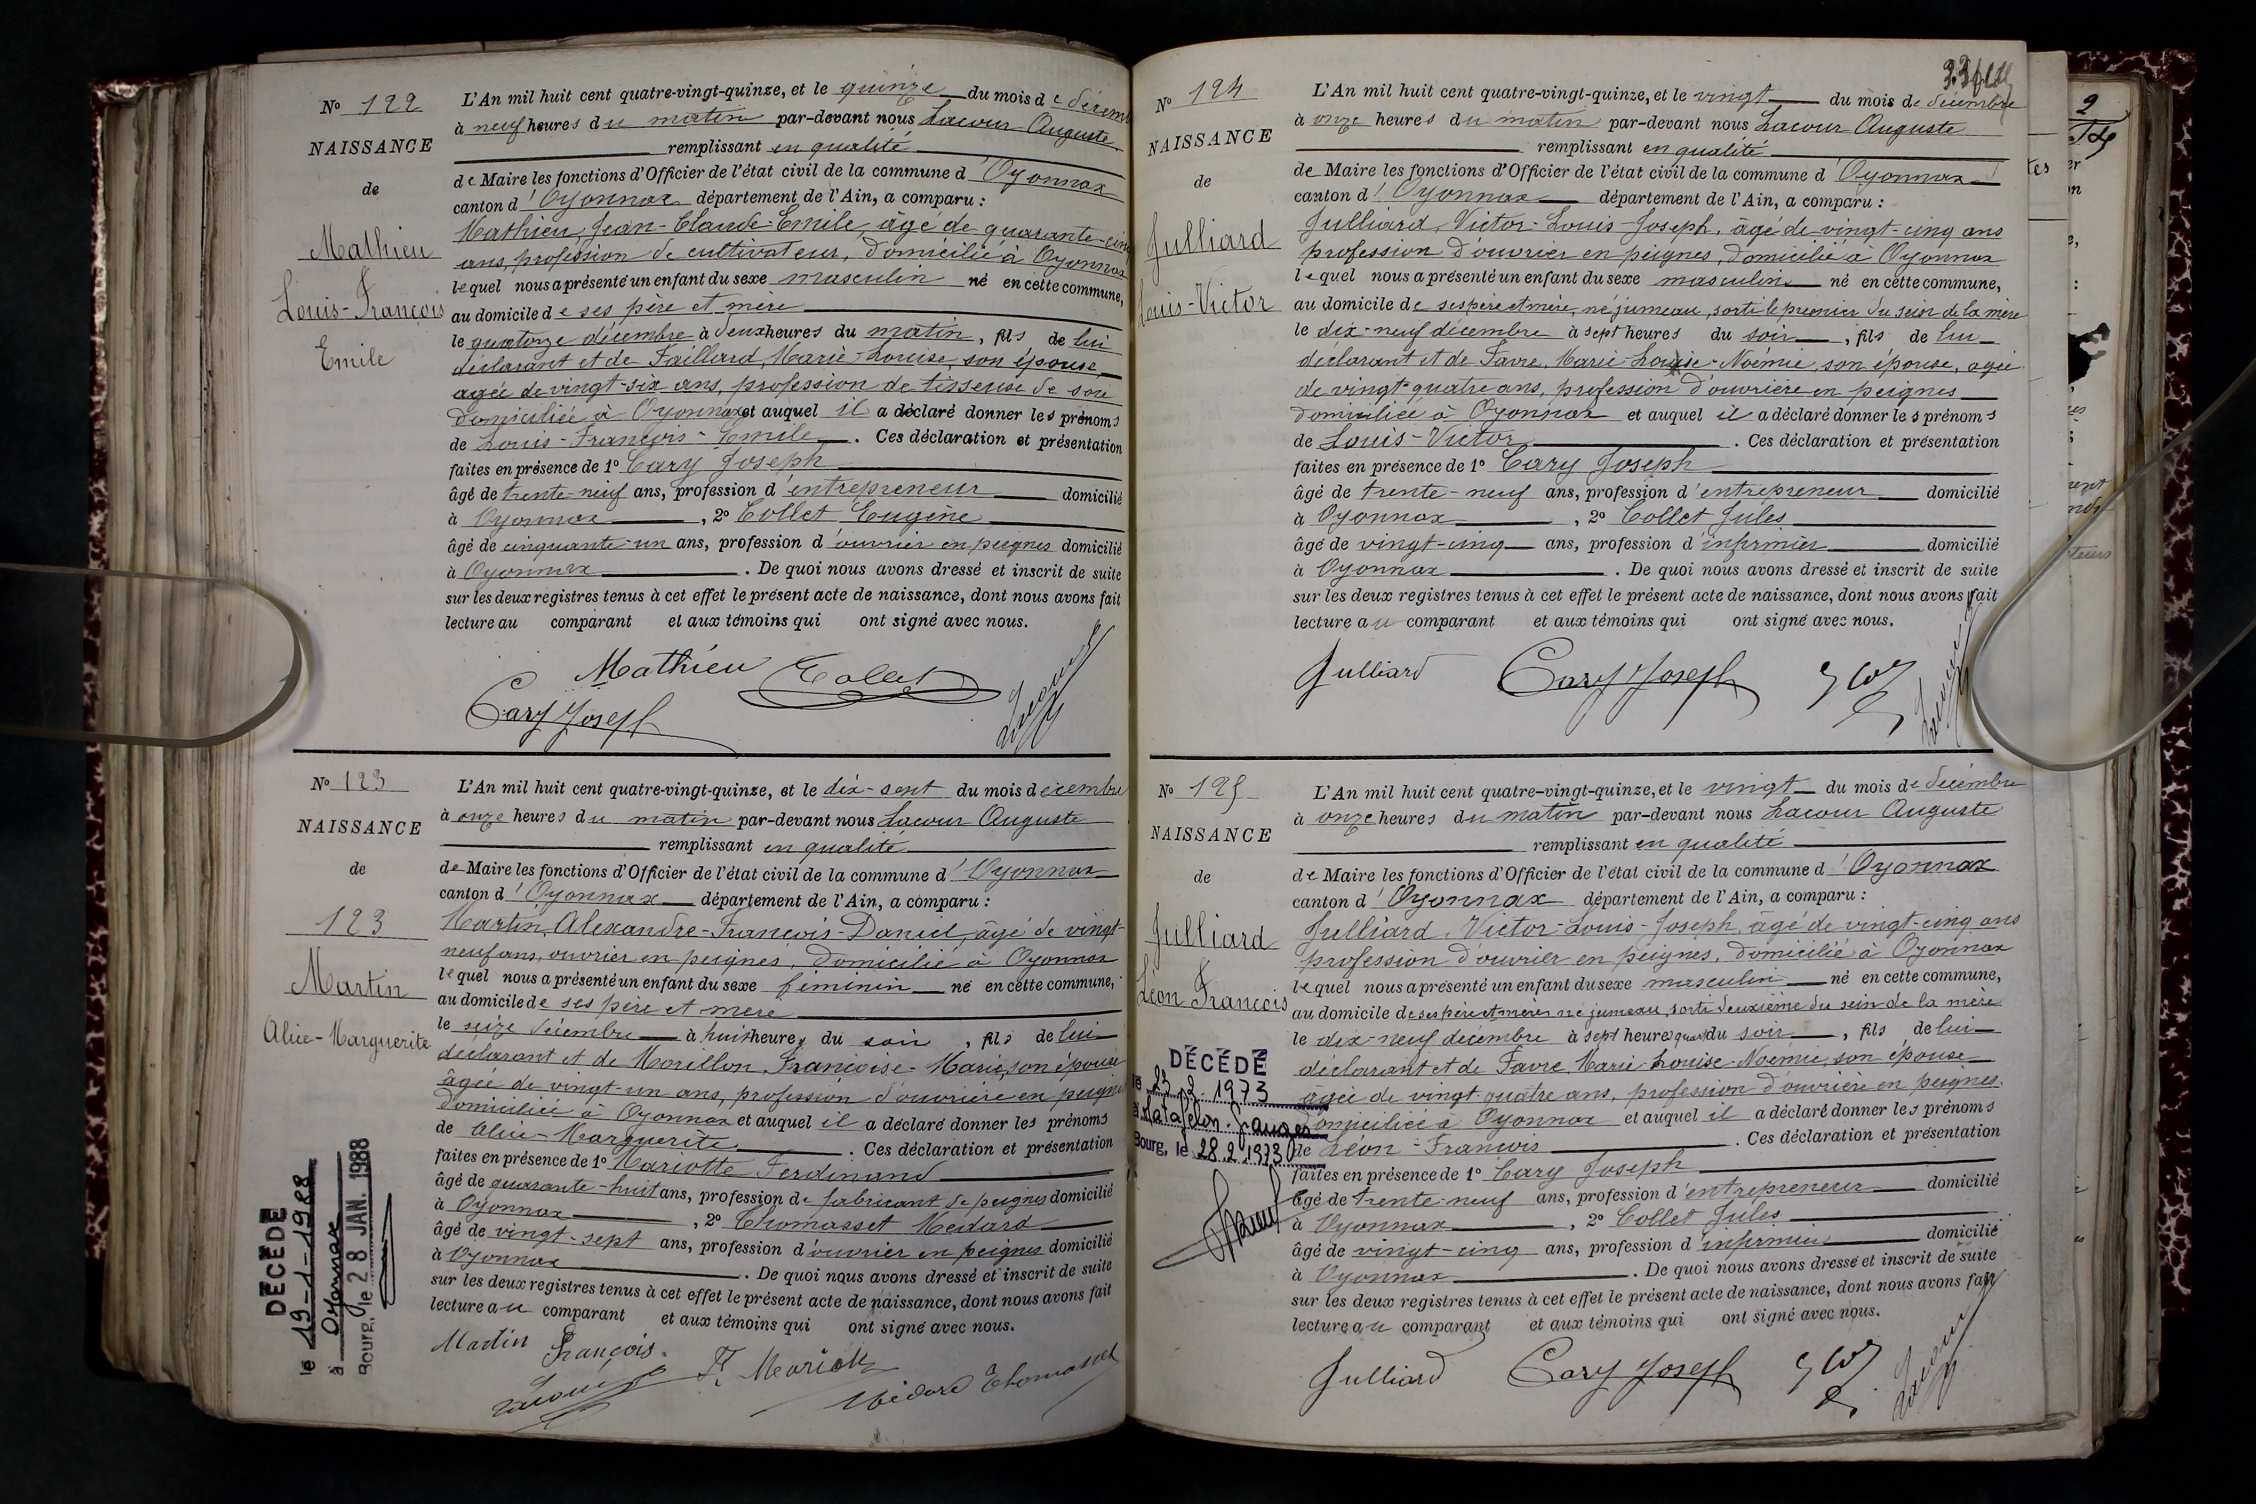 No 122
NAISSANCE
de
Mathieu
Louis-François
Emile
L'An mil huit cent quatre-vingt-quinze, et le quinze du mois de décemb
à neuf heures du matin par-devant nous Lacour Auguste
remplissant en qualité
de Maire les fonctions d'Officier de l'état civil de la commune d'Oyonnax
canton d'Oyonnax département de l'Ain, a comparu :
Mathieu, Jean-Claude-Emile, âgé de quarante-cinq
ans, profession de cultivateur, domicilié à Oyonnax
lequel nous a présenté un enfant du sexe masculin né en cette commune,
au domicile de ses père et mère
le quatorze décembre à deux heures du matin, fils de lui
déclarant et de Faillard, Marie-Louise, son épouse
agée de vingt-six ans, profession de tisseuse de soie
domiciliée à Oyonnax et auquel il a déclaré donner les prénoms
de Louis-François-Emile. Ces déclaration et présentation
faites en présence de 1º Cary Joseph
âgé de trente-neuf ans, profession d'entrepreneur domicilié
à Oyonnax, 2º Collet Eugène
âgé de cinquante-un ans, profession d'ouvrier en peignes domicilié
à Oyonnax. De quoi nous avons dressé et inscrit de suite
sur les deux registres tenus à cet effet le présent acte de naissance, dont nous avons fait
lecture au comparant et aux témoins qui ont signé avec nous.
Mathieu Collet
Cary Joseph Lacour
No 123
NAISSANCE
de
123
Martin
Alice-Marguerite
DÉCÉDÉ
le 19-1-1988
à Oyonnax
Bourg, le 28 JAN. 1988
L'An mil huit cent quatre-vingt-quinze, et le dix-sept du mois décembre
à onze heures du matin par-devant nous Lacour Auguste
remplissant en qualité
de Maire les fonctions d'Officier de l'état civil de la commune d'Oyonnax
canton d'Oyonnax département de l'Ain, a comparu :
Martin, Alexandre-François-Daniel, âgé de vingt-
neuf ans, ouvrier en peignes, domicilié à Oyonnax
lequel nous a présenté un enfant du sexe féminin né en cette commune,
au domicile de ses père et mère
le seize décembre à huit heures du soir, fils de lui
déclarant et de Morillon, Françoise-Marie, son épouse
âgée de vingt-un ans, profession d'ouvrière en peignes
domiciliée à Oyonnax et auquel il a déclaré donner les prénoms
de Alice-Marguerite. Ces déclaration et présentation
faites en présence de 1º Mariotte Ferdinand
âgé de quarante-huit ans, profession de fabricant de peignes domicilié
à Oyonnax, 2º Thomasset Médard
âgé de vingt-sept ans, profession d'ouvrier en peignes domicilié
à Oyonnax. De quoi nous avons dressé et inscrit de suite
sur les deux registres tenus à cet effet le présent acte de naissance, dont nous avons fait
lecture au comparant et aux témoins qui ont signé avec nous.
Martin François. F. Mariotte
Lacour Médard Thomasset
No 124
NAISSANCE
de
Julliard
Louis-Victor
L'An mil huit cent quatre-vingt-quinze, et le vingt du mois de décembre
à onze heures du matin par-devant nous Lacour Auguste
remplissant en qualité
de Maire les fonctions d'Officier de l'état civil de la commune d'Oyonnax
canton d'Oyonnax département de l'Ain, a comparu :
Julliard, Victor-Louis-Joseph, âgé de vingt-cinq ans
profession d'ouvrier en peignes, domicilié à Oyonnax
lequel nous a présenté un enfant du sexe masculin né en cette commune,
au domicile de ses père et mère, né jumeau, sorti le premier du sein de la mère
le dix-neuf décembre à sept heures du soir, fils de lui
déclarant et de Favre, Marie-Louise-Noémie, son épouse, agée
de vingt-quatre ans, profession d'ouvrière en peignes
domiciliée à Oyonnax et auquel il a déclaré donner les prénoms
de Louis-Victor. Ces déclaration et présentation
faites en présence de 1º Cary Joseph
âgé de trente-neuf ans, profession d'entrepreneur domicilié
à Oyonnax, 2º Collet Jules
âgé de vingt-cinq ans, profession d'infirmier domicilié
à Oyonnax. De quoi nous avons dressé et inscrit de suite
sur les deux registres tenus à cet effet le présent acte de naissance, dont nous avons fait
lecture au comparant et aux témoins qui ont signé avec nous.
Julliard Cary Joseph Lacour
No 125
NAISSANCE
de
Julliard
Léon François
DÉCÉDÉ
le 23.2.1973
à Matafelon-Granges
Bourg, le 28.2.1973
L'An mil huit cent quatre-vingt-quinze, et le vingt du mois de décembre
à onze heures du matin par-devant nous Lacour Auguste
remplissant en qualité
de Maire les fonctions d'Officier de l'état civil de la commune d'Oyonnax
canton d'Oyonnax département de l'Ain, a comparu :
Julliard, Victor-Louis-Joseph, âgé de vingt-cinq ans
profession d'ouvrier en peignes, domicilié à Oyonnax
lequel nous a présenté un enfant du sexe masculin né en cette commune,
au domicile de ses père et mère né jumeau, sorti deuxième du sein de la mère
le dix-neuf décembre à sept heures quart du soir, fils de lui
déclarant et de Favre, Marie-Louise-Noémie, son épouse
âgée de vingt-quatre ans, profession d'ouvrière en peignes,
domiciliée à Oyonnax et auquel il a déclaré donner les prénoms
de Léon-François. Ces déclaration et présentation
faites en présence de 1º Cary Joseph
âgé de trente-neuf ans, profession d'entrepreneur domicilié
à Oyonnax, 2º Collet Jules
âgé de vingt-cinq ans, profession d'infirmier domicilié
à Oyonnax. De quoi nous avons dressé et inscrit de suite
sur les deux registres tenus à cet effet le présent acte de naissance, dont nous avons fait
lecture au comparant et aux témoins qui ont signé avec nous.
Julliard Cary Joseph Lacour